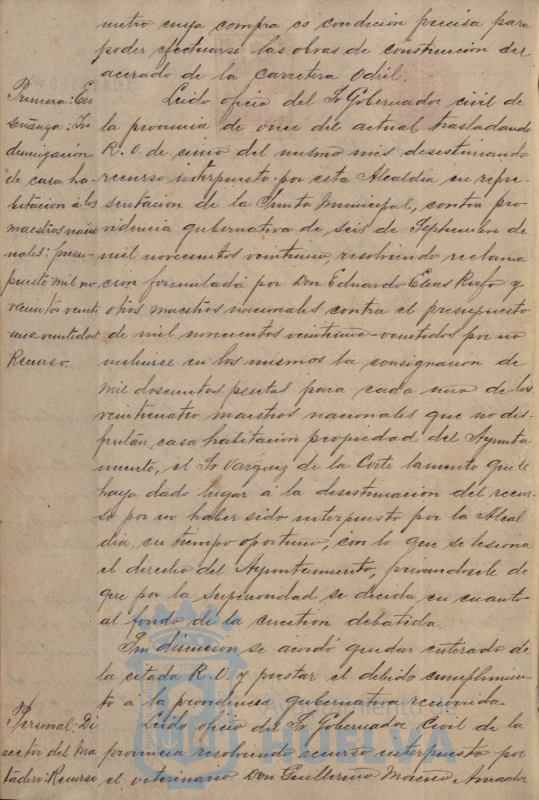 metro cuya compra es condición precisa para
poder efectuarse las obras de construcción del
acerado de la carretera Odiel.
Primera: En
señanza: In
demnización
de casa ha-
bitación á los
maestros nacio
nales: presu-
puesto mil no
vecientos veinti
uno-veintidos
Recurso.
Leido oficio del Sr Gobernador civil de
la provincia de once del actual trasladando
R. O. de cinco del mismo mes desestimando
recurso interpuesto por esta Alcaldía en repre-
sentacion de la Junta Municipal, contra pro-
videncia gubernativa de seis de Septiembre de
mil novecientos veintiuno, resolviendo reclama
cion formulada por Don Eduardo Elias Rufo y
otros maestros nacionales contra el presupuesto
de mil novecientos veintiuno-veintidos por no
incluirse en los mismos la consignacion de
mil doscientas pesetas para cada uno de los
veinticuatro maestros nacionales que no dis-
frutan casa habitacion propiedad del Ayunta
miento, el Sr Vazquez de la Corte lamentó que se
haya dado lugar á la desestimacion del recur-
so por no haber sido interpuesto por la Alcal
dia, en tiempo oportuno, con lo que se lesiona
el derecho del Ayuntamiento, privandosele de
que por la Superioridad se decida en cuanto
al fondo de la cuestion debatida.
Sin discusion se acordó quedar enterado de
la citada R. O. y prestar el debido cumplimien-
to á la providencia gubernativa recurrida.
Personal: Di
rector del Ma
tadero: Recurso
Leido oficio del Sr Gobernador Civil de la
provincia resolviendo recurso interpuesto por
el veterinario Don Guillermo Moreno Amador
Ayuntamiento de
HUELVA